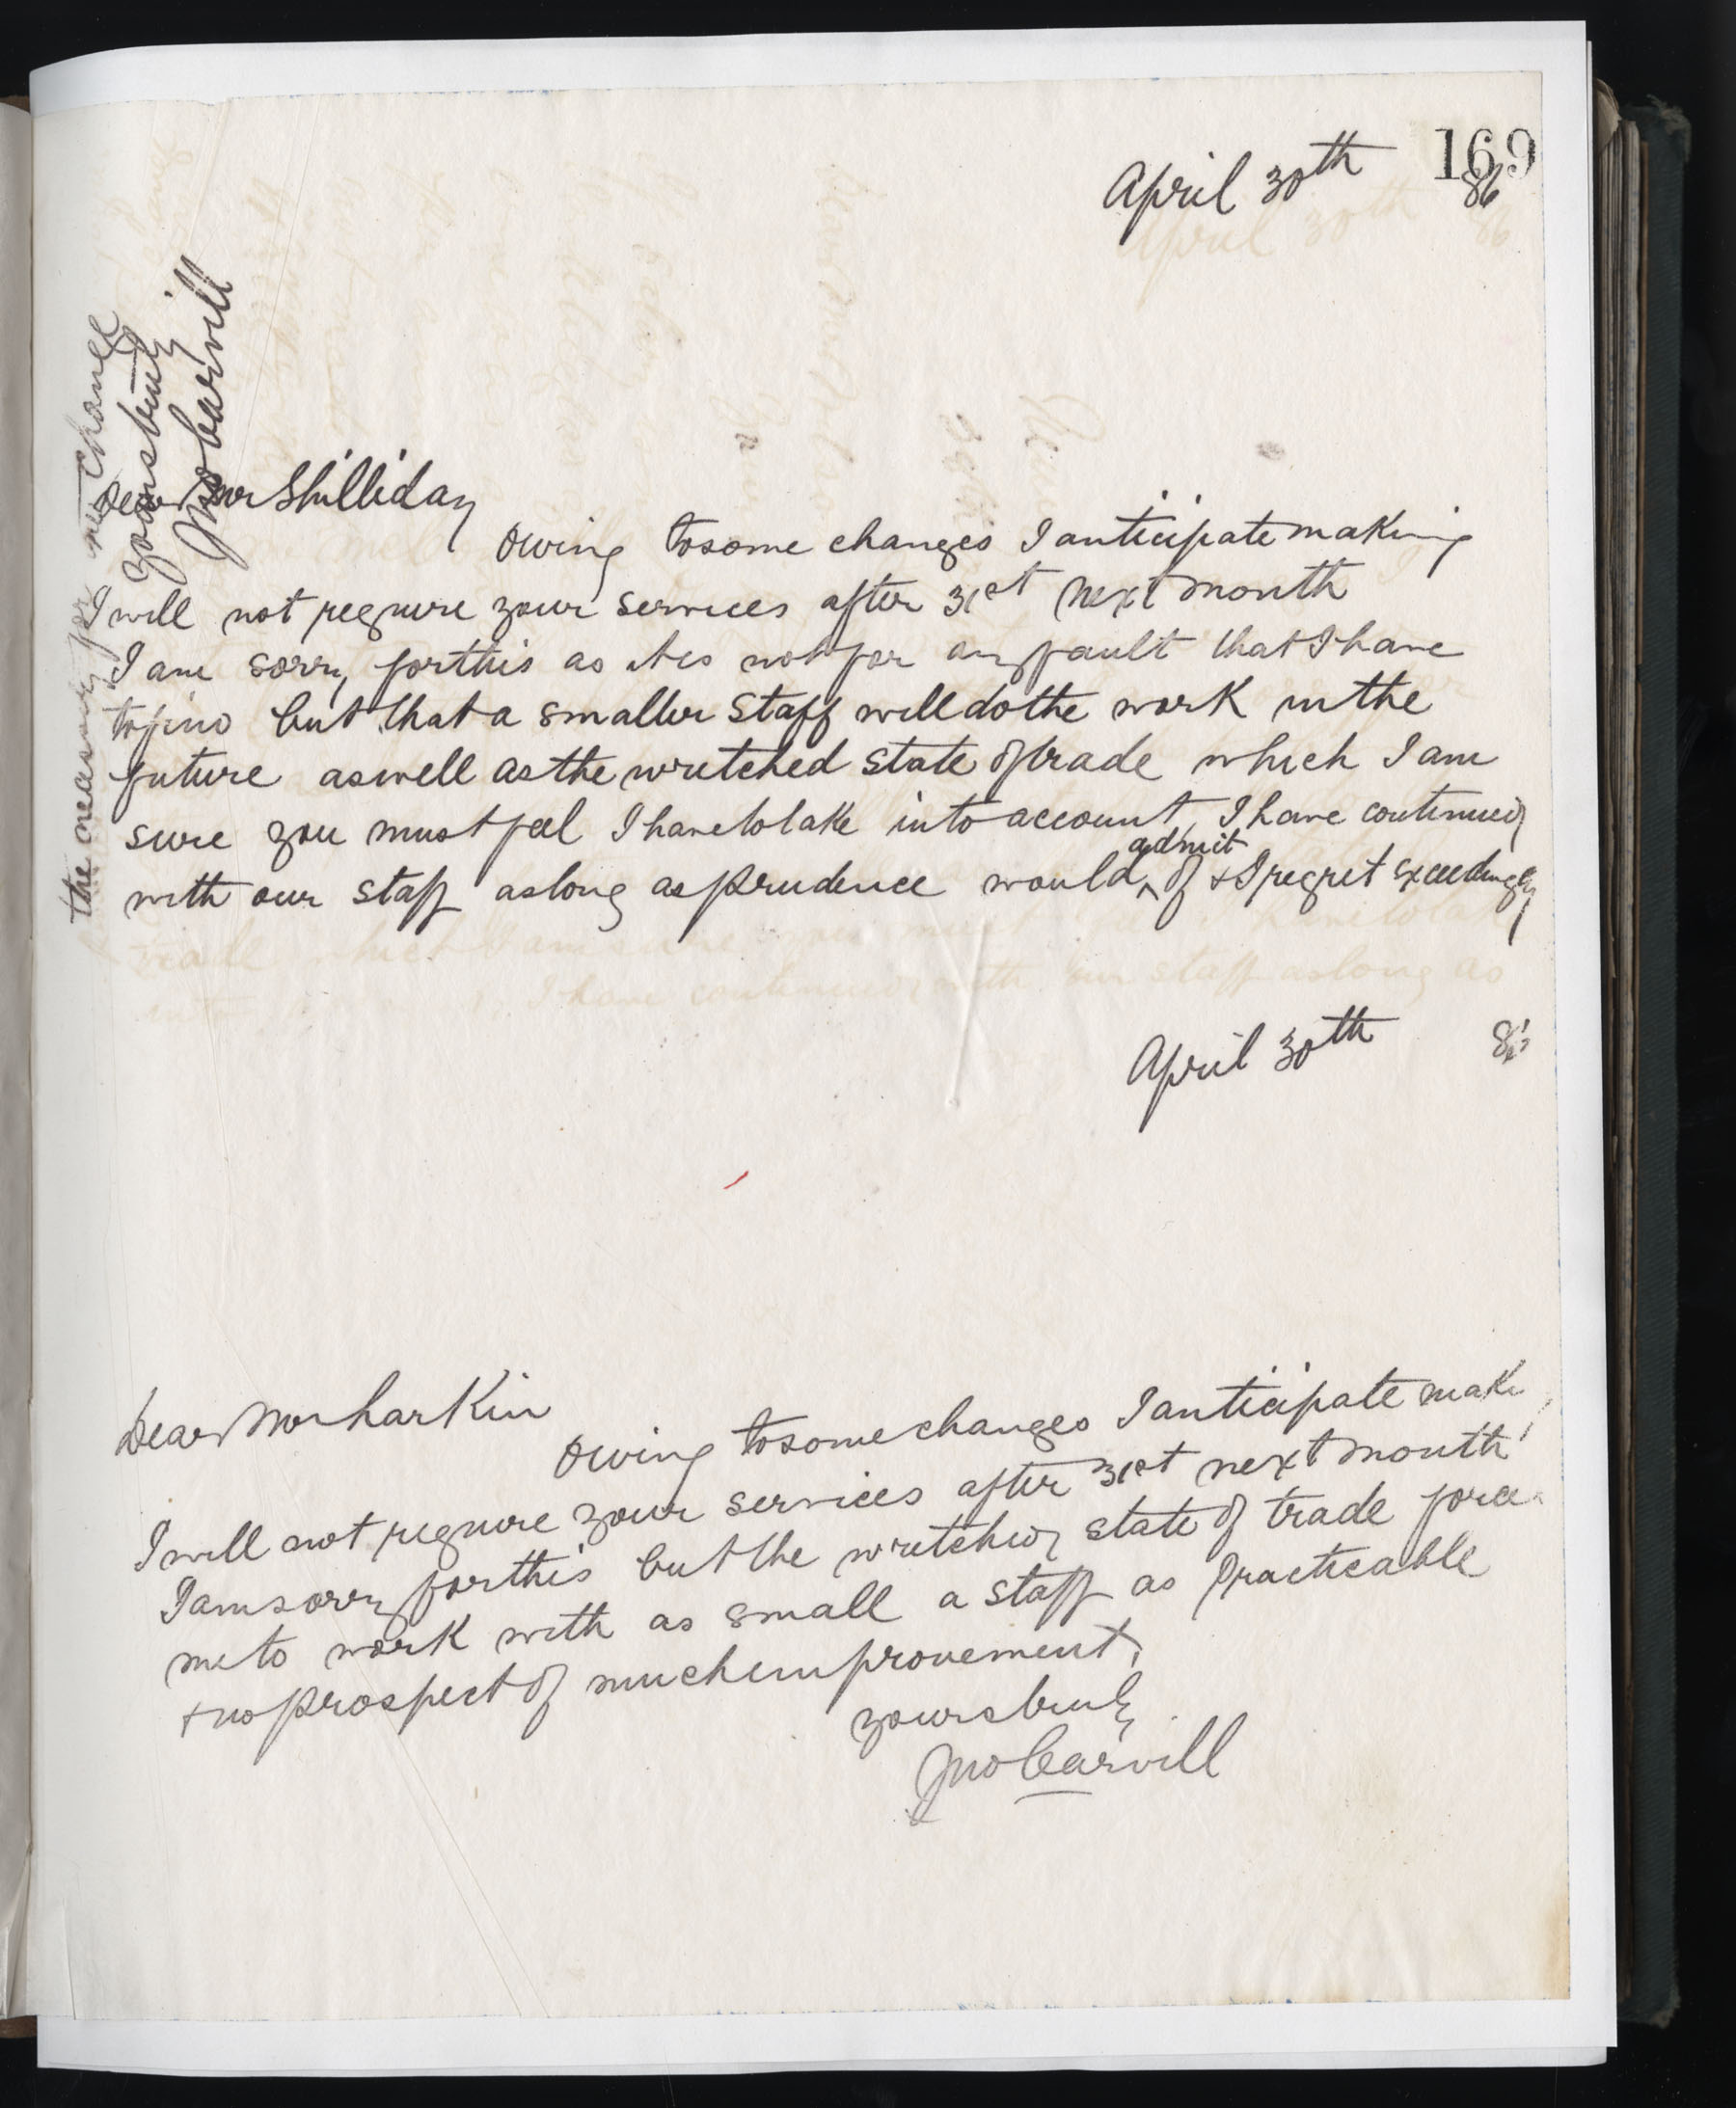 169
April 30th 86
Dear Mr Shilliday
Owing to some changes I anticipate making
I will not require your services after 31st next month
I am sorry for this as it is not for any fault that I have
to find but that a smaller staff will do the work in the
future as well as the wretched state of trade which I am
sure you must feel I have to take into account, I have continued
with our staff as long as prudence would ^ admit of & I regret exceedingly
the necessity for any change
yours truly
Jno Carvill
April 30th 86
Dear Mr Larkin
Owing to some changes I anticipate mak
I will not require your services after 31st next month
I am sorry for this but the wretched state of trade force
me to work with as small a staff as practicable
& no prospect of much improvement.
yours truly
Jno Carvill